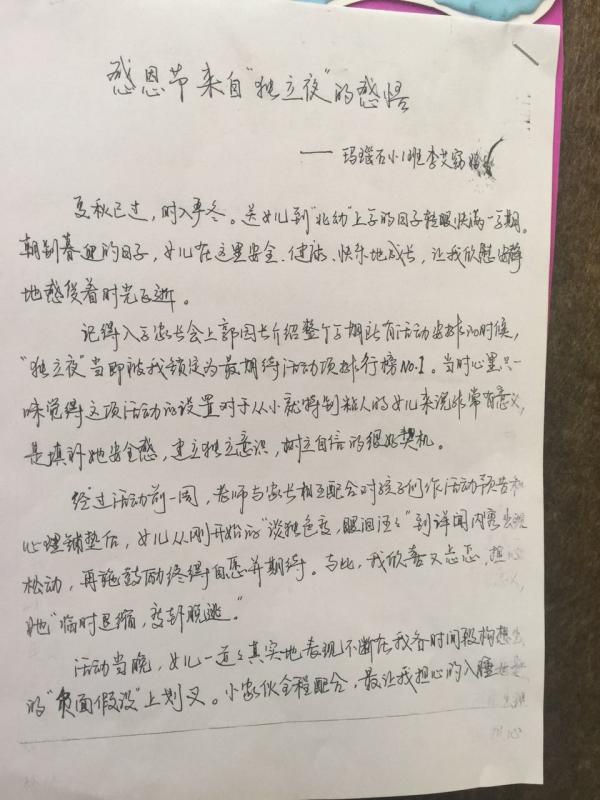 感恩节来自"独立夜"的感悟
——玛瑙石小1班李艾窈
夏秋已过，时入季冬。送女儿到"北幼"上学的日子转眼快满一学期。
朝别暮迎的日子，女儿在这里安全、健康、快乐地成长，让我欣慰安静
地感受着时光飞逝。
记得入学家长会上郭园长介绍整个学期所有活动安排的时候，
"独立夜"当即被我锁定为最期待活动项排行榜No.1。当时心里只一
味觉得这项活动的设置对于从小就特别粘人的女儿来说非常有意义，
是填补她安全感，建立独立意识，树立自信的很好契机。
经过活动前一周，老师与家长相互配合对孩子们作活动预告和
心理铺垫后，女儿从刚开始的"谈独色变，眼泪汪汪"到详闻内容出现
松动，再施鼓励终得自愿并期待。与此，我欣喜又忐忑，担心
她"临时退缩，变卦脱逃"
活动当晚，女儿一道道真实地表现不断在我各时间段构想出
的"负面假设"上划叉。小家伙全程配合，最让我担心的入睡